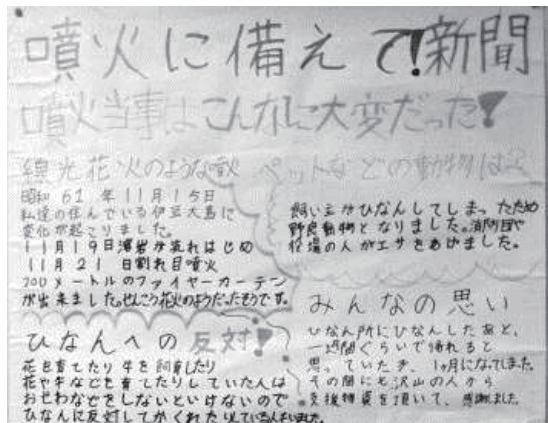 噴火に備えて!新聞
噴火当事はこんなに大変だった!
線光花火のような噴火
昭和 61 年 11月 15日
私達の住んでいる伊豆大島に
変化が起こりました。
11月19日溶岩が流れはじめ
11月21日割れ目噴火
200メートルのファイヤーカーテン
が出来ました。せんこう花火のようだったそうです。
ペットなどの動物は?
飼い主がひなんしてしまったため
野良動物となりました。消防団や
役場の人がエサをあげました。
ひなんへの反対!
花を育てたり牛を飼育したり
花や牛などを育てたりしていた人は
おせわなどをしないといけないので
ひなんに反対してかくれたりしている人もいました。
みんなの思い
ひなん所にひなんしたあと、
一週間ぐらいで帰れると
思っていたが、1ヶ月になってしまった。
その間にも沢山の人から
支援物資を頂いて、感謝しました。